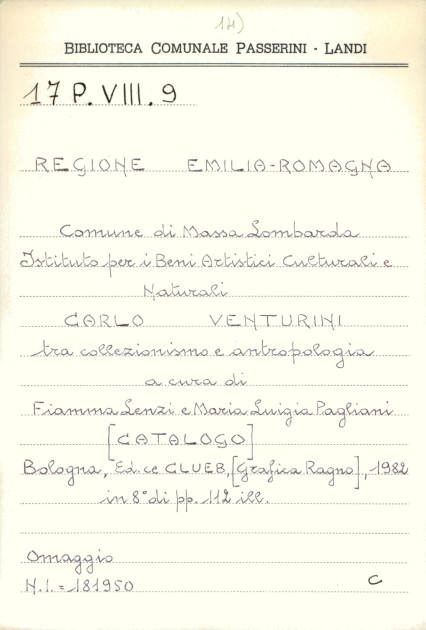 14)
BIBLIOTECA COMUNALE PASSERINI - LANDI
17 P. VIII. 9
REGIONE EMILIA-ROMAGNA
Comune di Massa Lombarda
Istituto per i Beni Artistici Culturali e
Naturali
CARLO VENTURINI
tra collezionismo e antropologia
a cura di
Fiamma Lenzi e Maria Luigia Pagliani
[CATALOGO]
Bologna, Ed.ce CLUEB, [Grafica Ragno], 1982
in 8° di pp. 112 ill.
Omaggio
N.I. = 181950
C